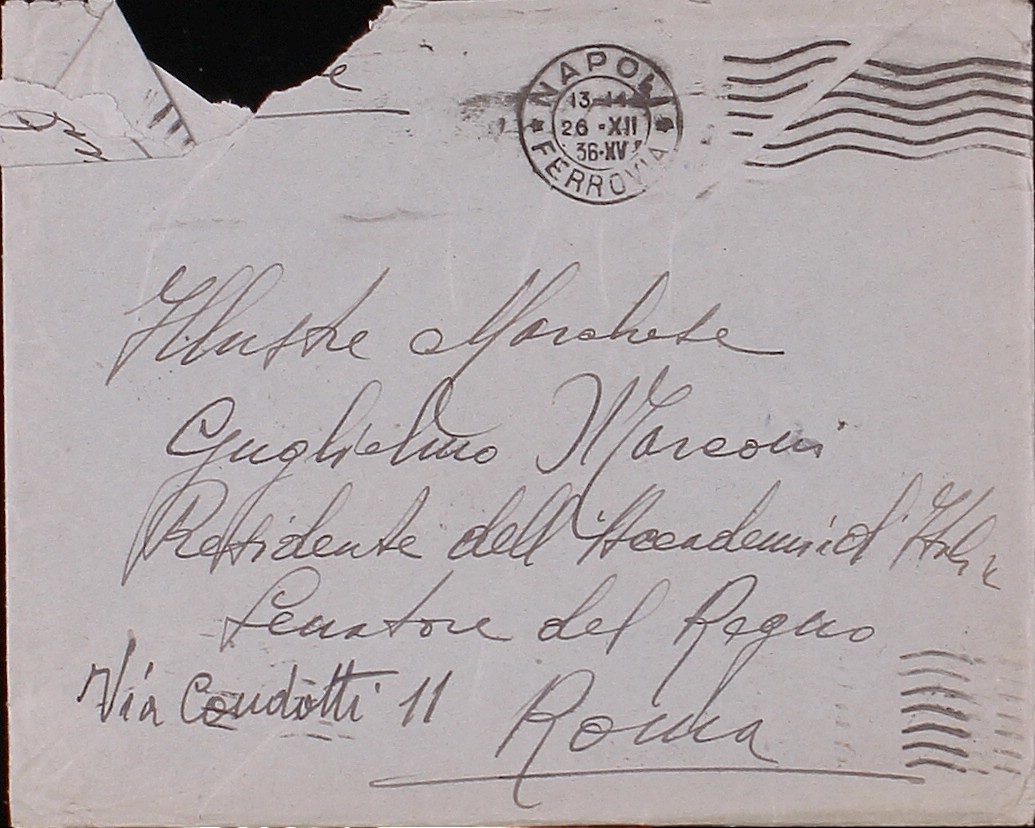 NAPOLI
13-14
26·XII
36·XV
FERROVIA
Illustre Marchese
Guglielmo Marconi
Presidente dell'Accademia d'Italia
Senatore del Regno
Via Condotti 11
Roma